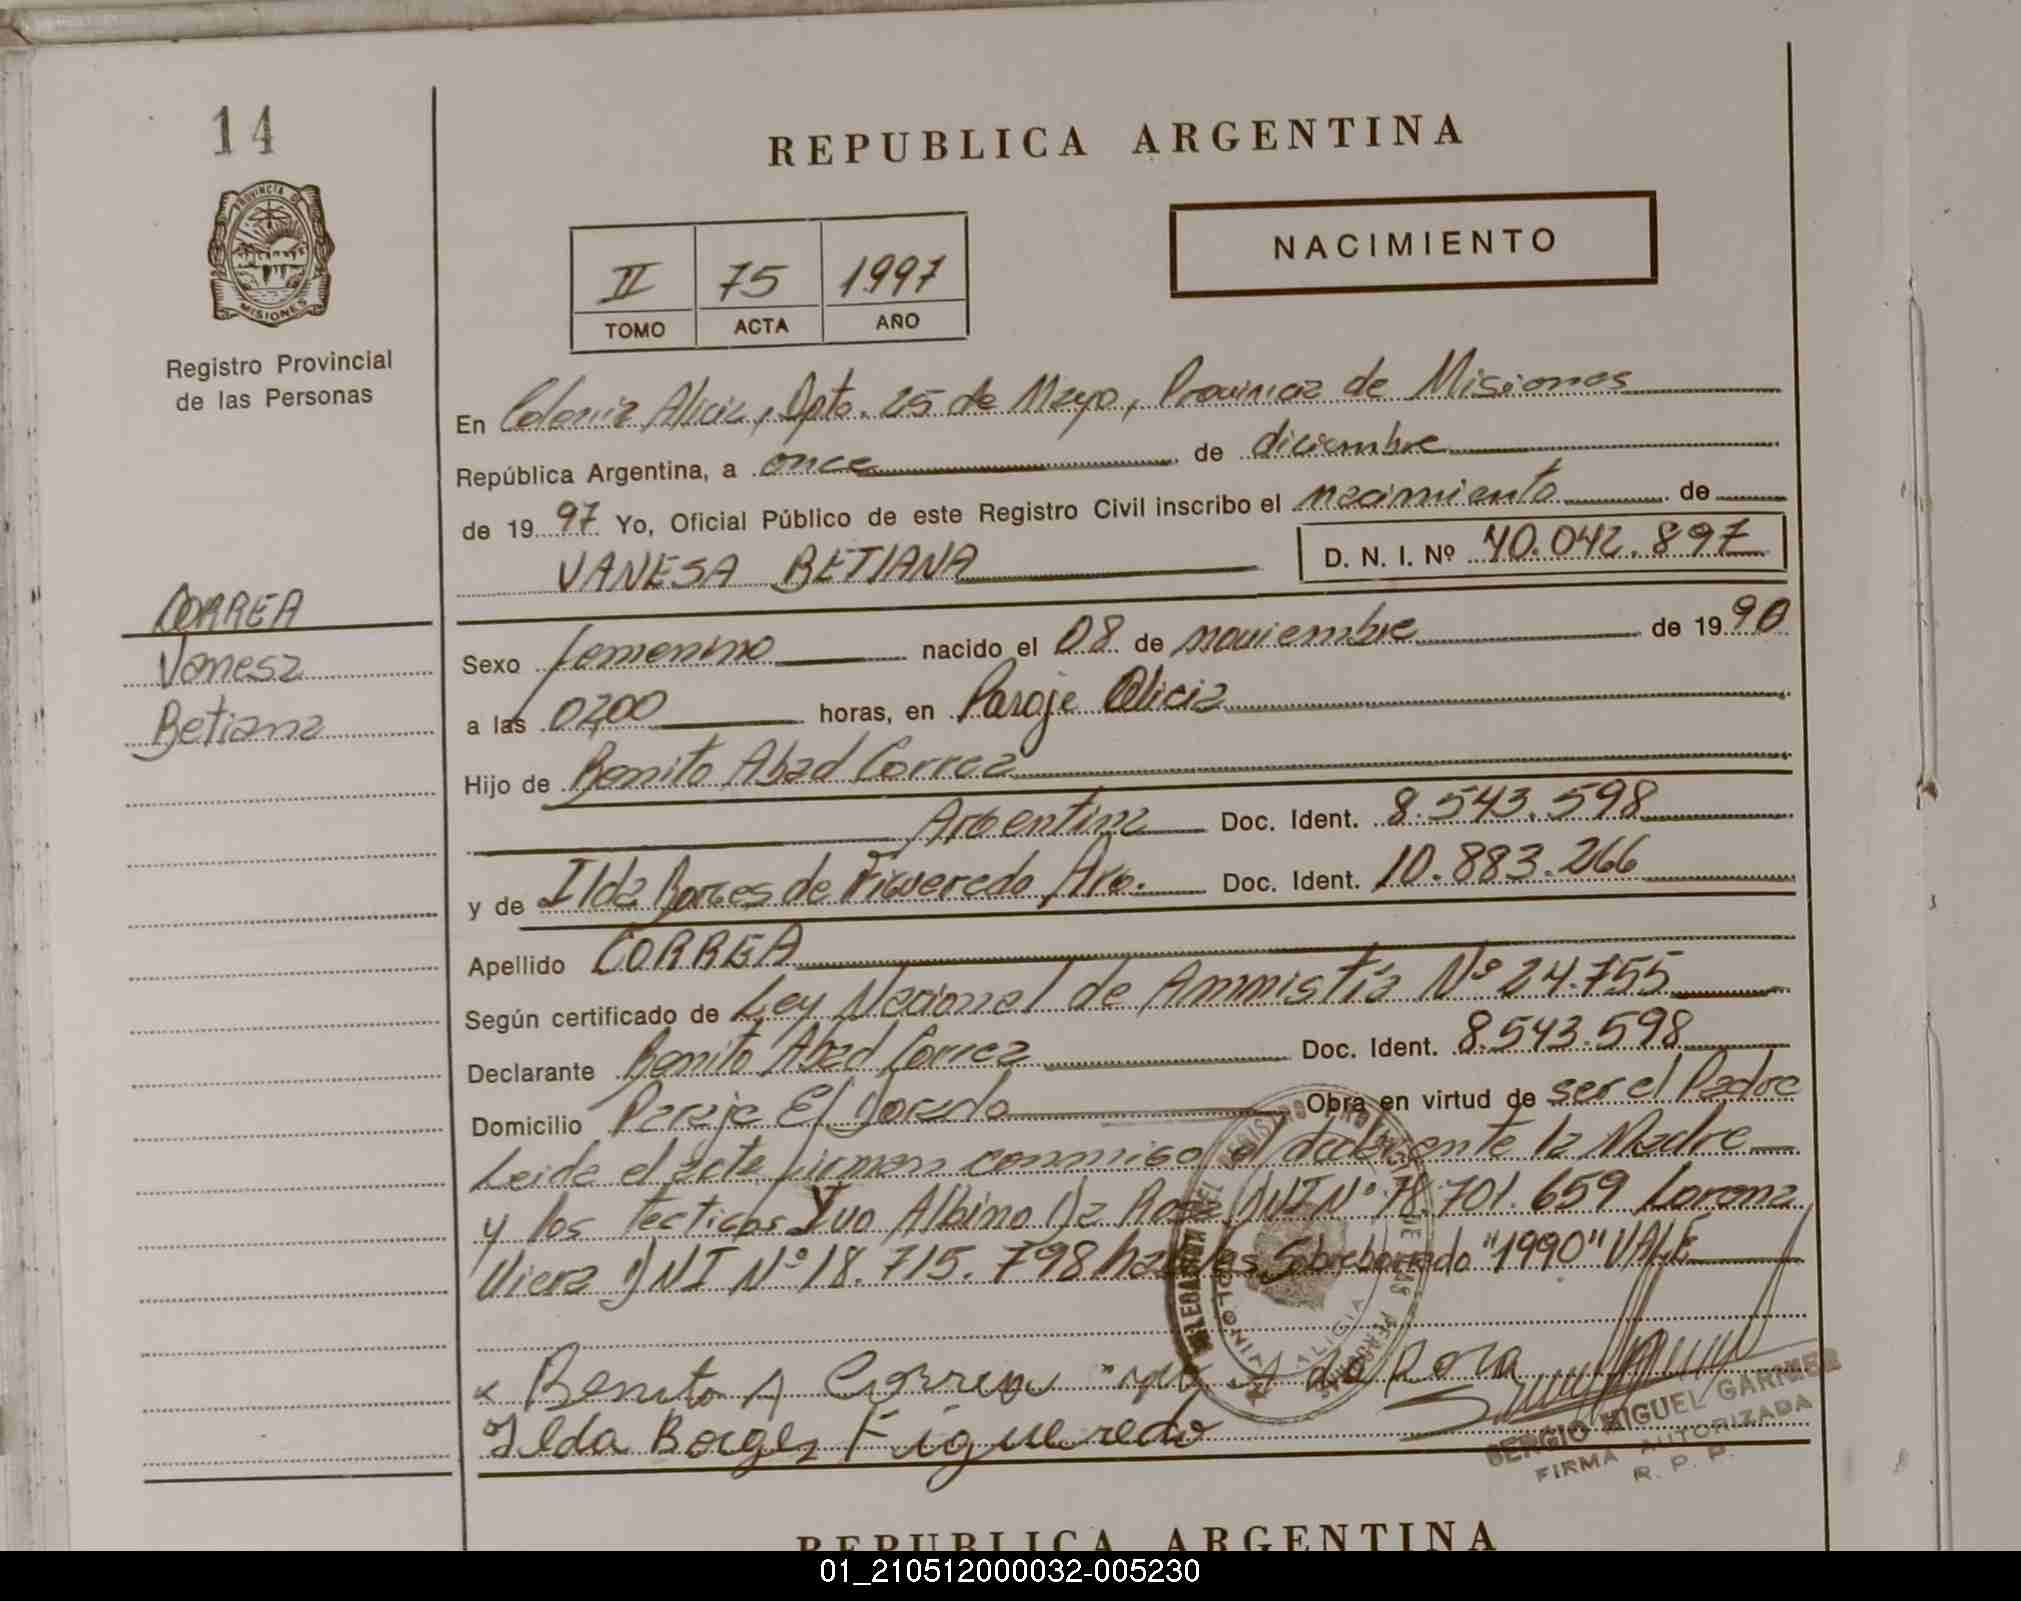 14
PROVINCIA DE
MISIONES
Registro Provincial
de las Personas
REPUBLICA ARGENTINA
II 75 1997
TOMO ACTA AÑO
NACIMIENTO
En Colonia Alicia, Dpto. 25 de Mayo, Provincia de Misiones
República Argentina, a once de diciembre
de 19 97 Yo, Oficial Público de este Registro Civil inscribo el nacimiento de
VANESA BETIANA D. N. I. Nº 40.042.897
CORREA
Vanesa
Betiana
Sexo femenino nacido el 08 de noviembre de 19 90
a las 0200 horas, en Paraje Alicia
Hijo de Benito Abad Correa
Argentina Doc. Ident. 8.543.598
y de Ilda Borges de Figueredo Arg. Doc. Ident. 10.883.266
Apellido CORREA
Según certificado de Ley Nacional de Amnistía Nº 24.755
Declarante Benito Abad Correa Doc. Ident. 8.543.598
Domicilio Paraje El Dorado Obra en virtud de ser el Padre
Leida el acta firman conmigo el declarente la Madre
y los tecticos Ivo Albino Da Rosa DNI Nº 18.701.659 Lorena
Viera DNI Nº 18.715.798 habiles Sobreborrado "1990" VALE
Benito A Correa A da Roza
Ilda Borges Figueredo
SERGIO MIGUEL GARNIER
FIRMA AUTORIZADA
R. P. P.
REPUBLICA ARGENTINA
01_210512000032-005230